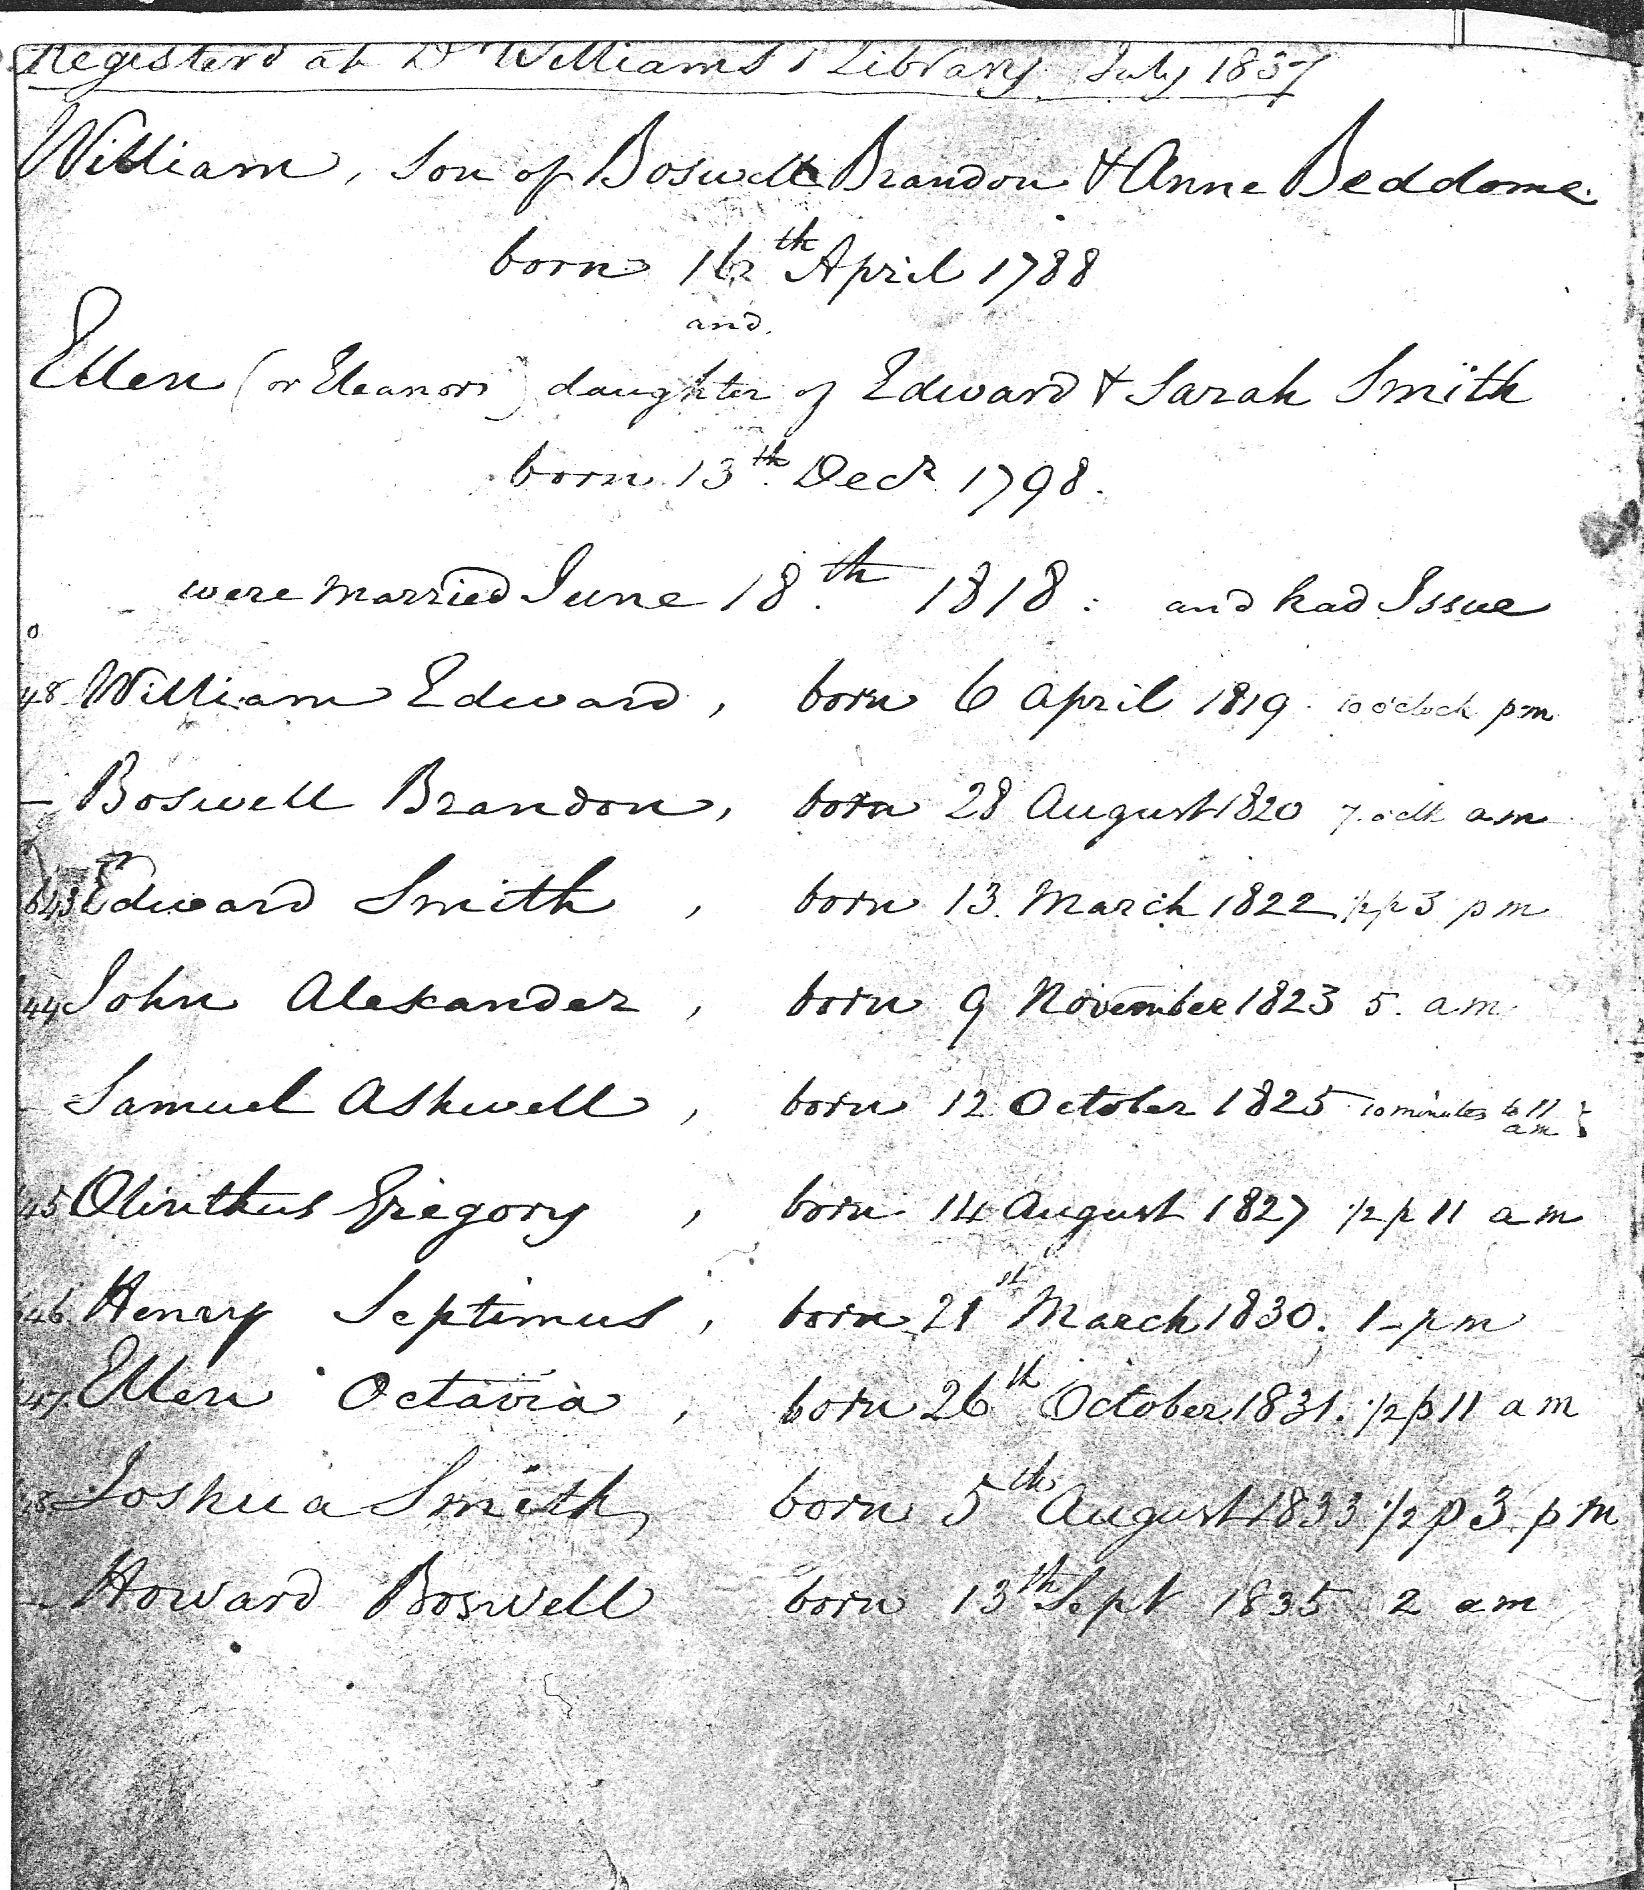 Registerd at Dr Williams's Library July 1837
William, Son of Boswell Brandon & Anne Beddome.
born 16th April 1788
and.
Ellen (or Eleanor) daughter of Edward & Sarah Smith
born 13th Decr 1798.
were married June 18th 1818: and had Issue
William Edward, born 6 April 1819. 10 o'clock pm
Boswell Brandon, born 28 August 1820 7. oclk am
Edward Smith, born 13. March 1822 1/2 p 3 pm
44 John Alexander, born 9 November 1823 5. am
Samuel Ashwell, born 12 October 1825 10 minutes to 11 am }
45 Olinthus Gregory, born 14 August 1827 1/2 p 11 am
46 Henry Septimus, born 21st March 1830. 1 - pm
47 Ellen Octavia, born 26th October 1831. 1/2 p 11 am
48 Joshua Smith, born 5th August 1833 1/2 p 3. pm
- Howard Boswell born 13th Sept 1835 2 am